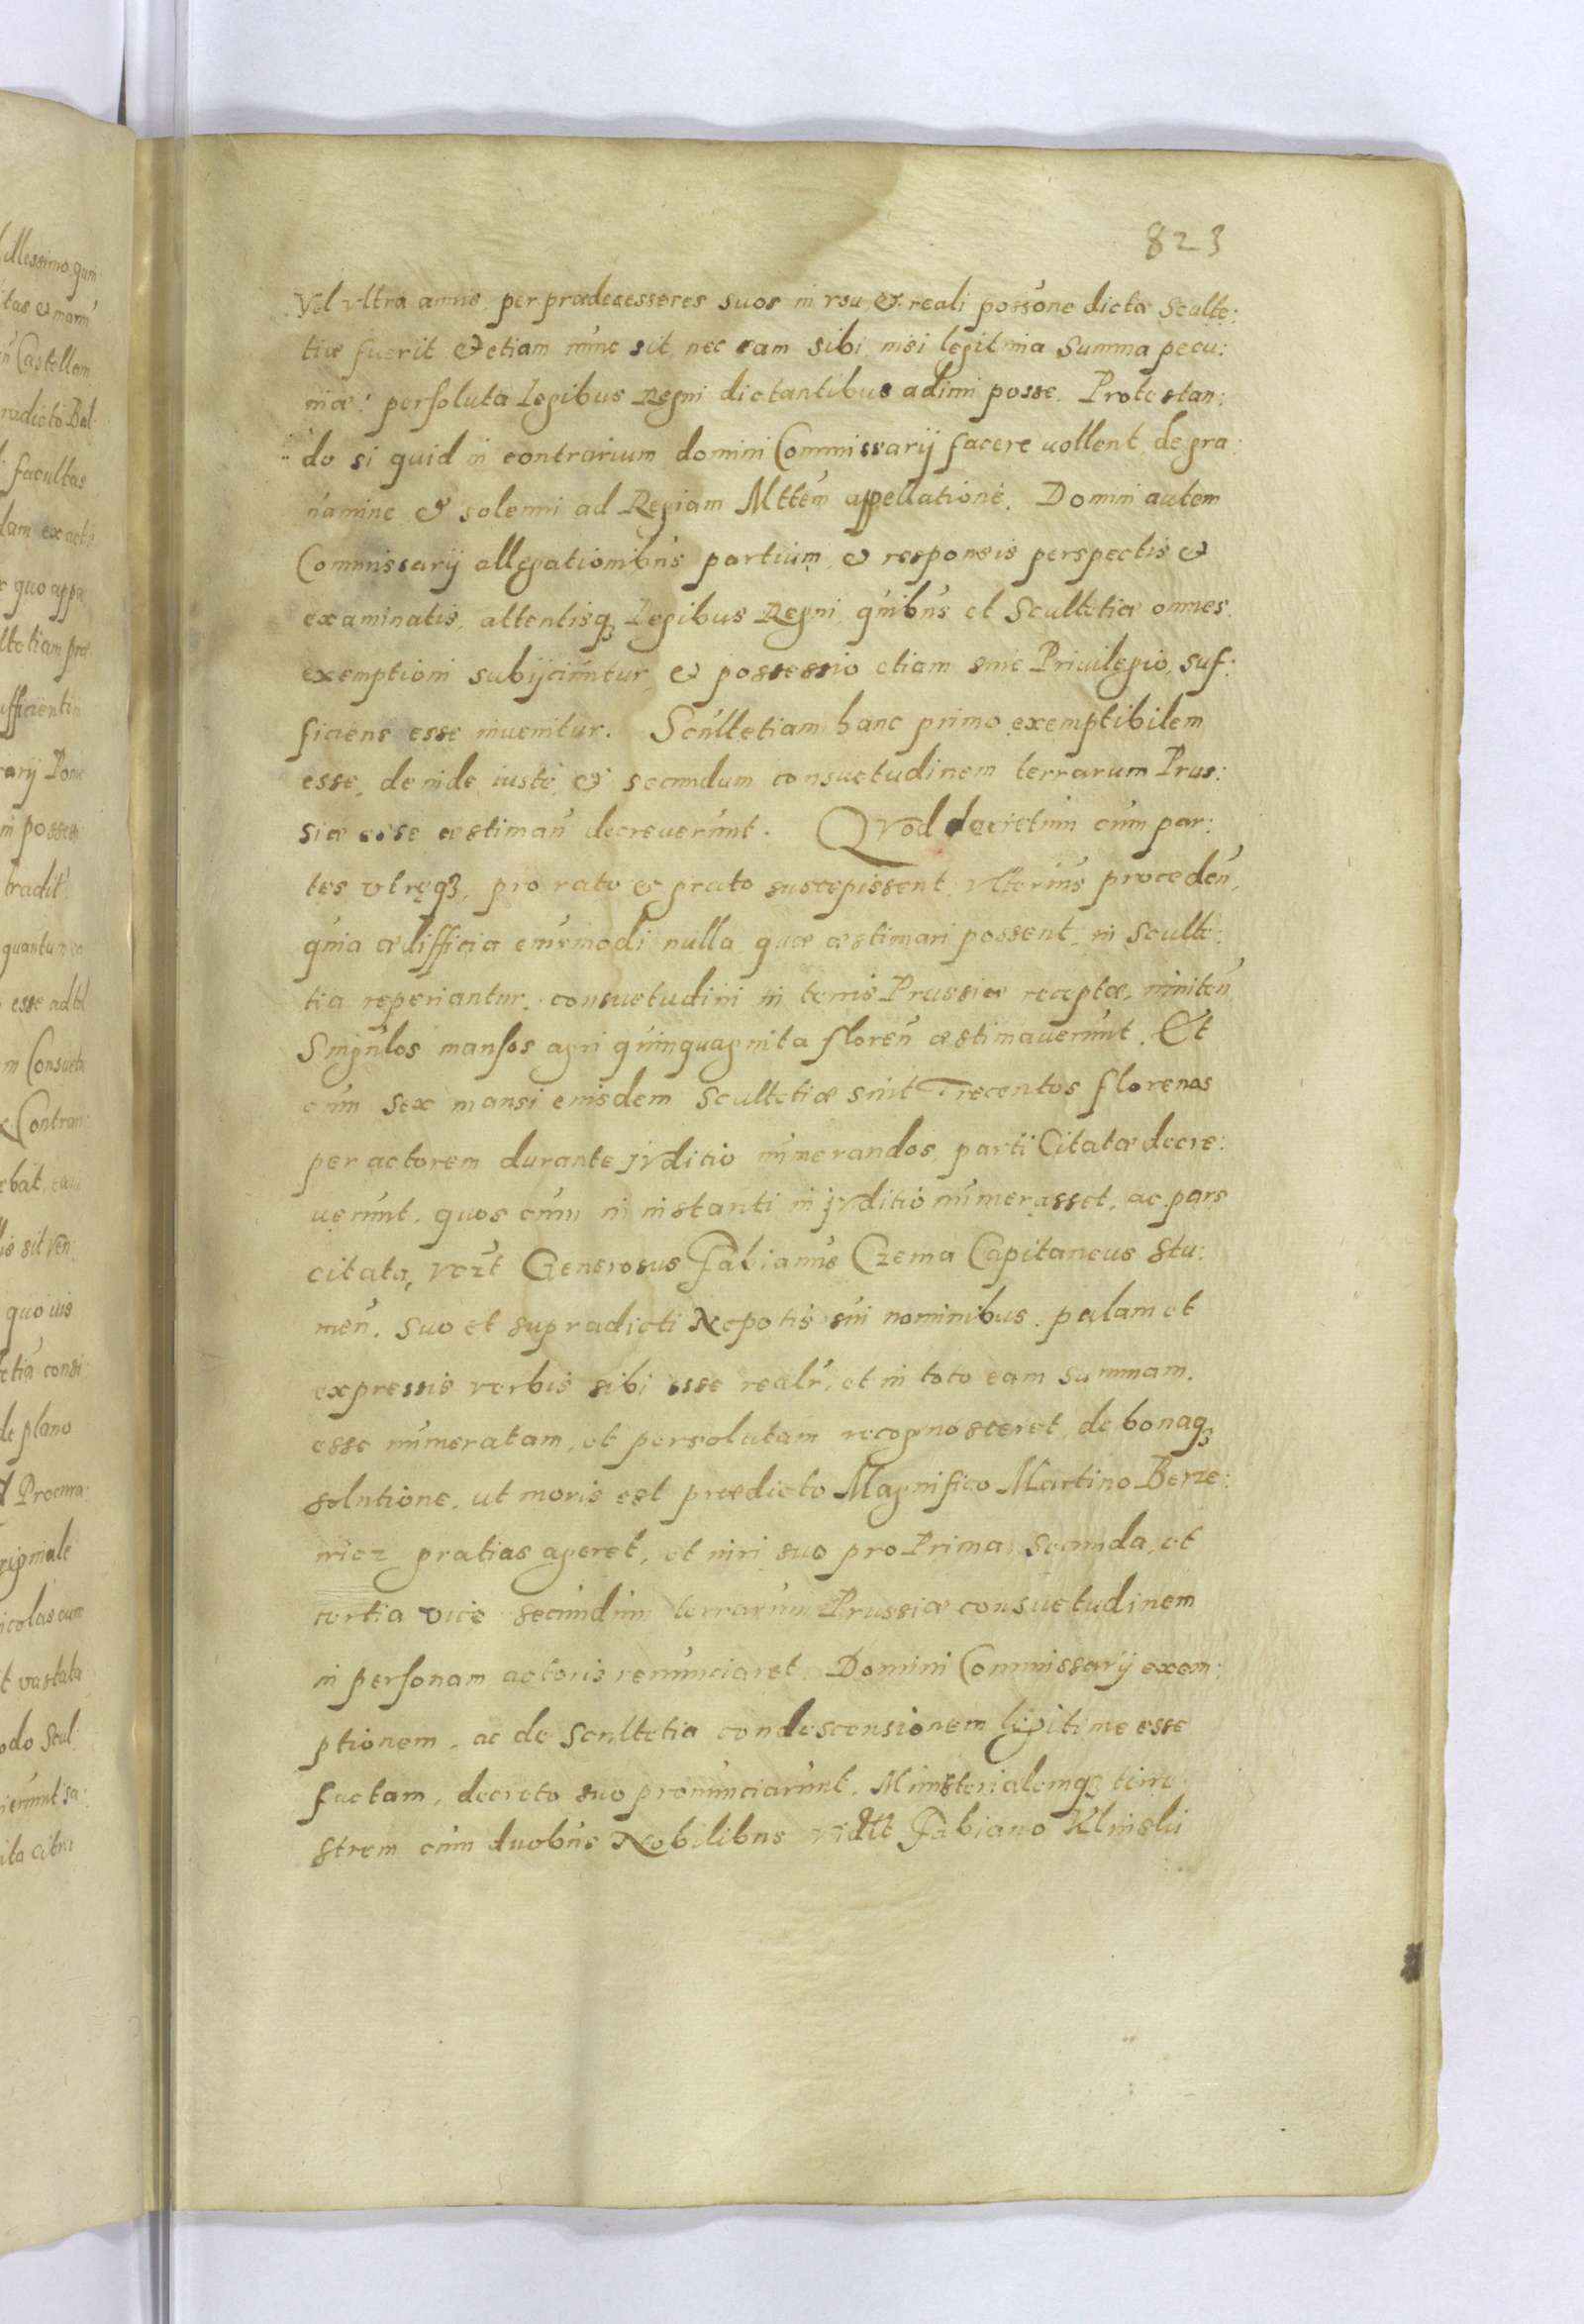 823
Vel vltra annis per prædecessores suos in vsu & reali possóne dictæ Sculte:
tiæ fuerit & etiam nunc sit, nec eam sibi nisi legitima Summa pecu:
niæ: persoluta legibus Regni dictantibus adimi posse. Protestan:
do si quid in contrarium domini Commissarij facere vollent, de gra:
uamine & solenni ad Regiam Mttem appellatione. Domini autem
Commissarij allegationibus partium, & responsis perspectis &
examinatis, attentisq3 Legibus Regni, quibus et Scultetiæ omnes
exemptioni subijciuntur, & possessio etiam sine Priuilegio, suf:
ficiens esse inuenitur. Scultetiam hanc primo exemptibilem
esse, deinde iuste, & secundum consuetudinem terrarum Prus:
siæ esse æstimañ decreuerunt. Qvod decretum cum par:
tes vtręq3, pro rato & grato suscepissent, vlterius procedeñ,
quia ædifficia eiusmodi nulla quæ æstimari possent, in Sculte:
tia reperiantur. consuetudini in terris Prussiæ receptæ, initeñ
Singulos mansos agri quinquaginta floreñ æstimauerunt. Et
cum sex mansi eiusdem Scultetiæ sint Trecentos florenos
per actorem durante jvditio numerandos, parti Citatæ decre:
uerunt, quos cum in instanti in jvditio numerasset, ac pars
citata, vczt Generosus Fabianus Czema Capitaneus Stu:
meñ. Suo et supradicti Nepotis sui nominibus. palam et
expressis verbis sibi esse realr, et in toto eam summam.
esse numeratam, et persolutam recognosceret, de bonaq3
solutione, ut moris est prædicto Magnifico Martino Berze:
wicz gratias ageret, et iuri suo pro Prima, Secunda, et
tertia vice secundum terrarum Prussiæ consuetudinem
in personam actoris renunciaret. Domini Commissarij exem:
ptionem, ac de Scultetia condescensionem legitime esse
factam, decreto suo pronunciarunt. Ministerialemq3 terre
strem cum duobus Nobilibus vidtt Fabiano Klinski